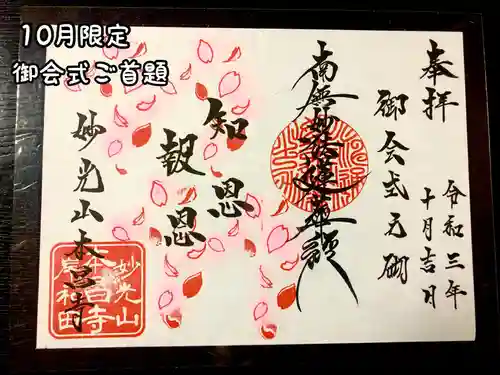 10月限定
御会式ご首題
奉拝
御会式之砌
令和三年
十月吉日
南無妙法蓮華経
知恩
報恩
妙光山本昌寺
妙光山
本昌寺
岸和田